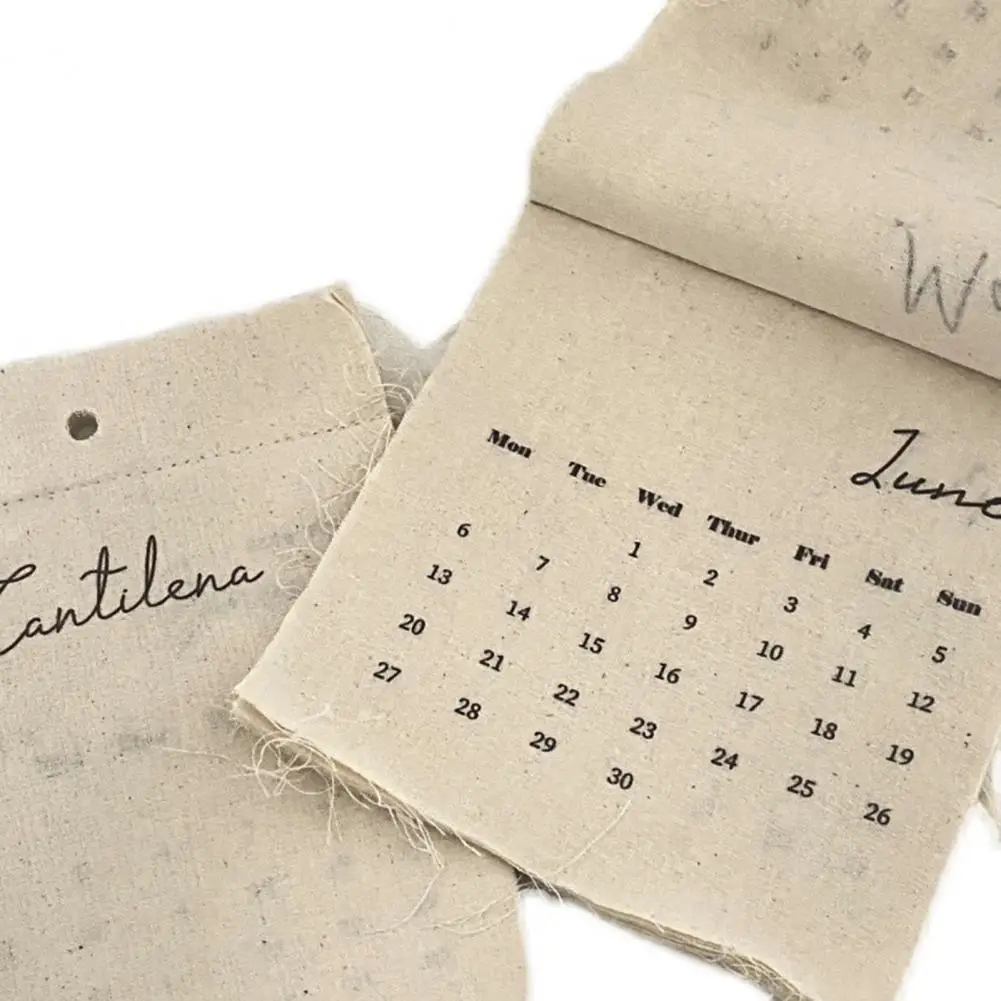 Cantilena
June
Mon Tue Wed Thur Fri Sat Sun
1 2 3 4 5
6 7 8 9 10 11 12
13 14 15 16 17 18 19
20 21 22 23 24 25 26
27 28 29 30